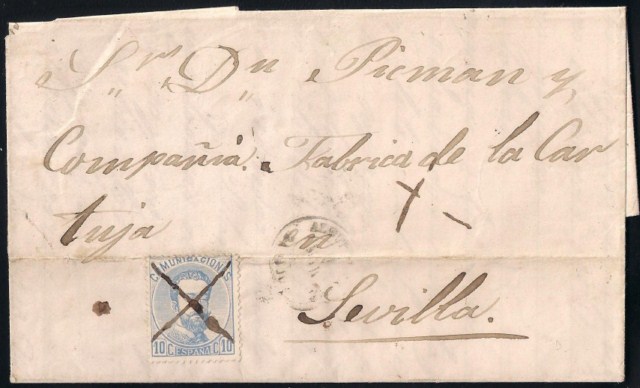 Sres Dn Picman y
Compañia. Fabrica de la Car
tuja en
Sevilla.
COMUNICACIONES
10 C. ESPAÑA C. 10